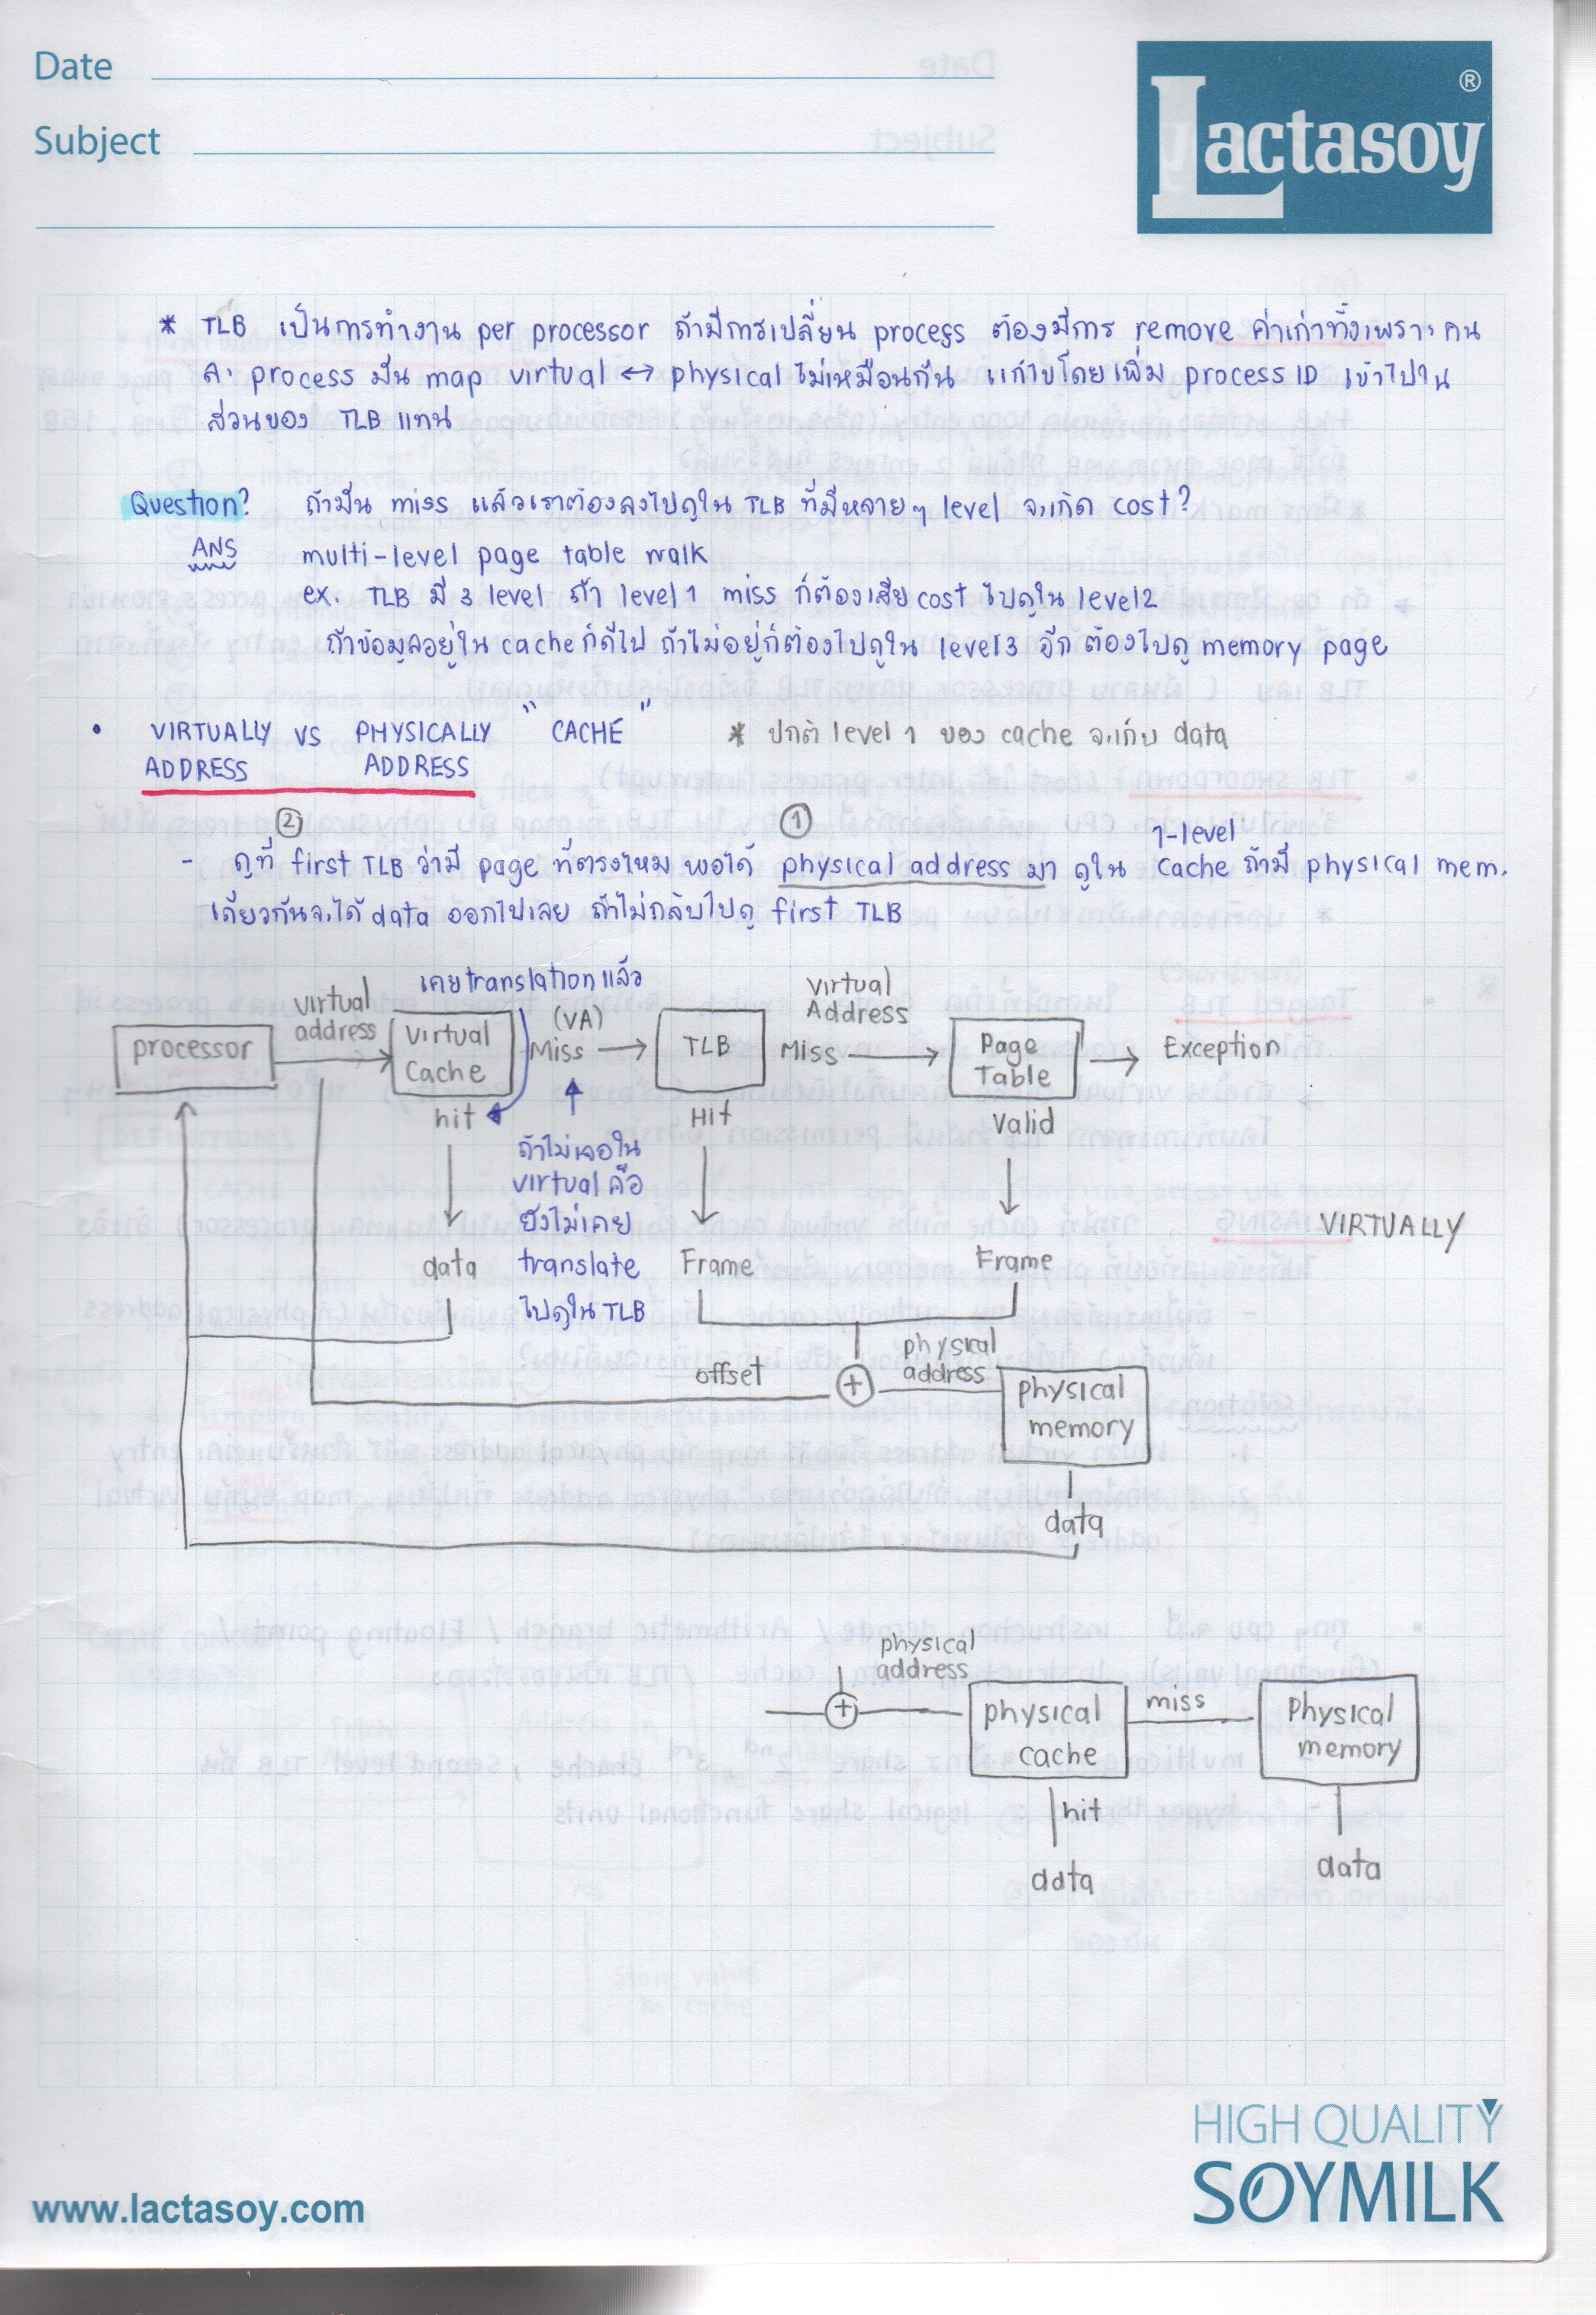 Date
Subject
Lactasoy ®
* TLB เป็นการทำงาน per processor ถ้ามีการเปลี่ยน process ต้องมีการ remove ค่าเก่าทิ้งเพราะ คน
ละ process มัน map virtual ↔ physical ไม่เหมือนกัน แก้ไขโดยเพิ่ม process ID เข้าไปใน
ส่วนของ TLB แทน
Question? ถ้ามัน miss แล้วเราต้องลงไปดูใน TLB ที่มีหลายๆ level จะเกิด cost?
ANS multi-level page table walk
ex. TLB มี 3 level ถ้า level 1 miss ก็ต้องเสีย cost ไปดูใน level2
ถ้าข้อมูลอยู่ใน cache ก็ดีไป ถ้าไม่อยู่ก็ต้องไปดูใน level3 อีก ต้องไปดู memory page
• VIRTUALLY VS PHYSICALLY " CACHE " * ปกติ level 1 ของ cache จะเก็บ data
ADDRESS ADDRESS
② ①
1-level
- ดูที่ first TLB ว่ามี page ที่ตรงไหม พอได้ physical address มา ดูใน cache ถ้ามี physical mem.
เดียวกันจะได้ data ออกไปเลย ถ้าไม่กลับไปดู first TLB
เคย translation แล้ว
virtual address
(VA)
Virtual Address
processor
Virtual Cache
Miss
TLB
Miss
Page Table
Exception
hit
Hit
Valid
ถ้าไม่เจอใน
virtual คือ
ยังไม่เคย
translate
ไปดูใน TLB
VIRTUALLY
data
Frame
Frame
offset
+
physical address
physical memory
data
physical address
+
physical cache
miss
Physical memory
hit
data
data
HIGH QUALITY
SOYMILK
www.lactasoy.com